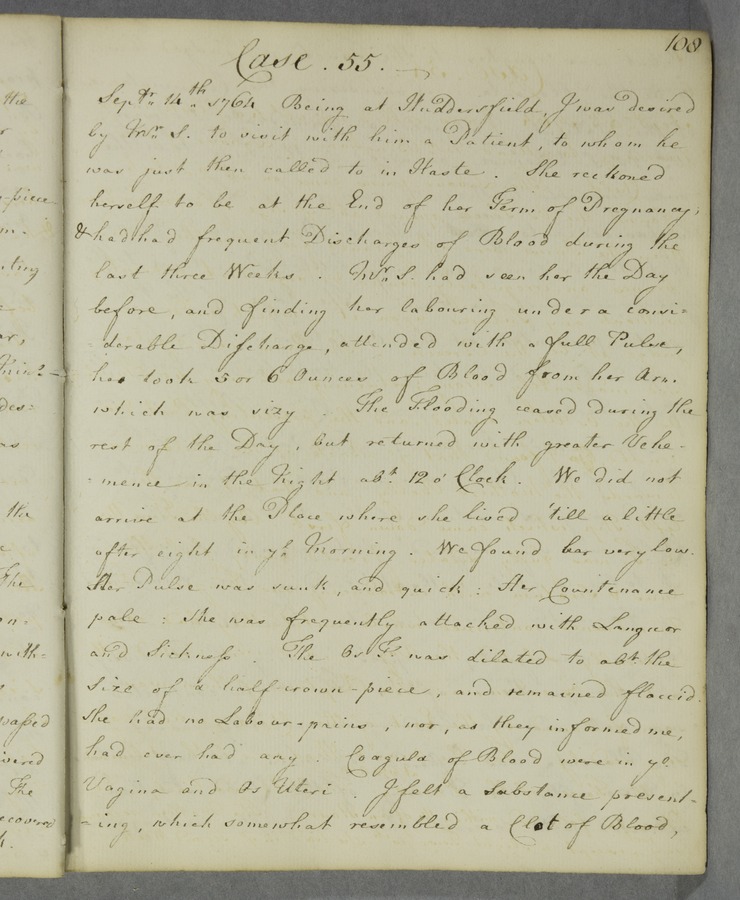 108
Case. 55.
Septr. 14th. 1764 Being at Huddersfield, I was desired
by Mr. S. to visit with him a Patient, to whom he
was just then called to in Haste. She reckoned
herself to be at the End of her Term of Pregnancy;
& had had frequent Discharges of Blood during the
last three Weeks. Mr. S. had seen her the Day
before, and finding her labouring under a consi=
=derable Discharge, attended with a full Pulse,
he took 5 or 6 Ounces of Blood from her Arm.
which was sizy. The Flooding ceased during the
rest of the Day, but returned with greater Vehe-
=mence in the Night abt. 12 o'Clock. We did not
arrive at the Place where she lived 'till a little
after eight in ye. Morning. We found her very low.
Her Pulse was sunk, and quick: Her Countenance
pale: She was frequently attacked with Languor
and Sickness. The Os T. was dilated to abt. the
Size of a half-crown-piece, and remained flaccid.
She had no Labour-pains, nor, as they informed me,
had ever had any. Coagula of Blood were in ye.
Vagina and Os Uteri. I felt a Substance present-
=ing, which somewhat resembled a Clot of Blood,
the
-piece
m.
ting
ar,
des=
as
the
The
on-
with=
vered
The
recovered